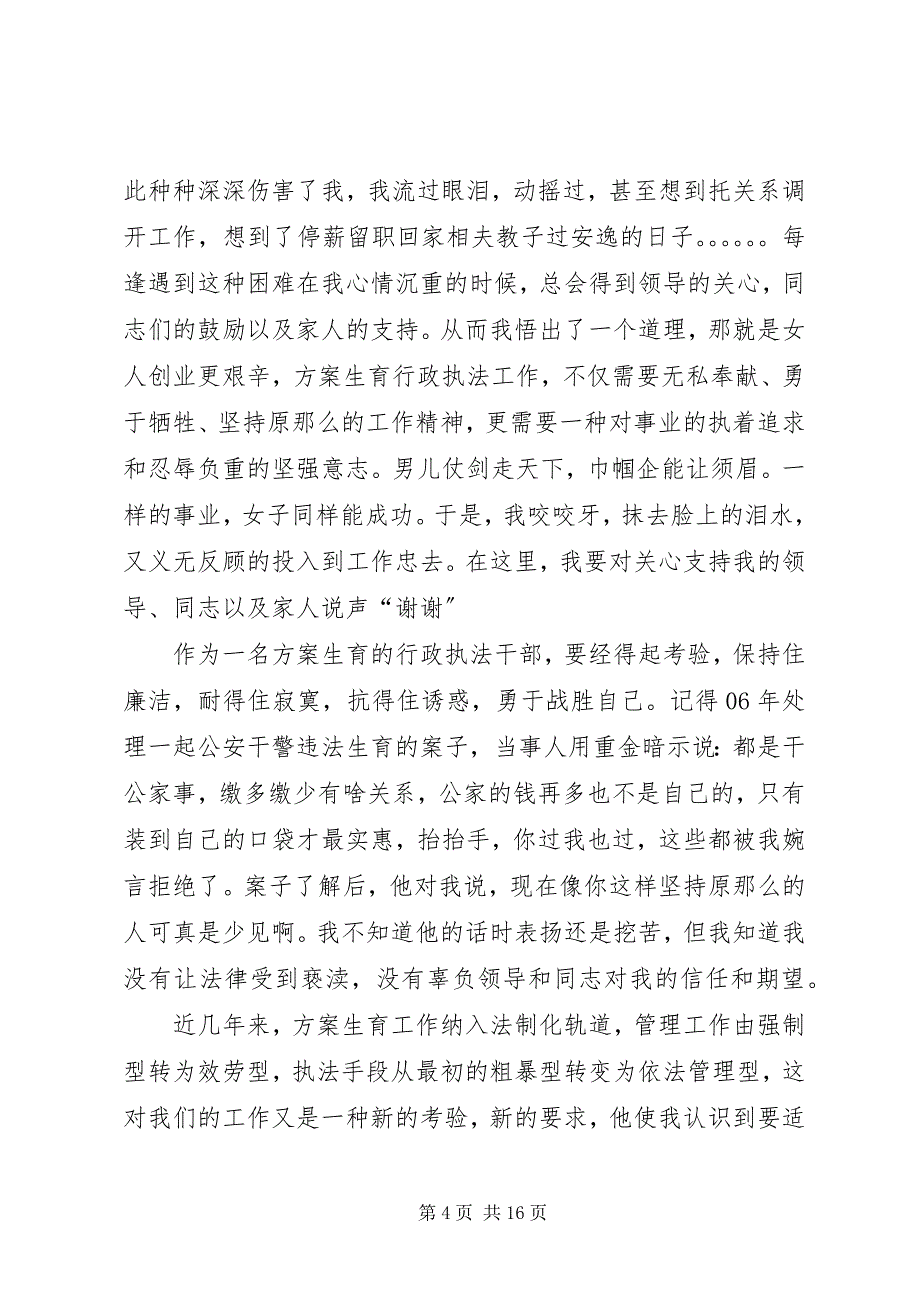 此种种深深伤害了我，我流过眼泪，动摇过，甚至想到托关系调
开工作，想到了停薪留职回家相夫教子过安逸的日子。。。。。。每
逢遇到这种困难在我心情沉重的时候，总会得到领导的关心，同
志们的鼓励以及家人的支持。从而我悟出了一个道理，那就是女
人创业更艰辛，方案生育行政执法工作，不仅需要无私奉献、勇
于牺牲、坚持原那么的工作精神，更需要一种对事业的执着追求
和忍辱负重的坚强意志。男儿仗剑走天下，巾帼企能让须眉。一
样的事业，女子同样能成功。于是，我咬咬牙，抹去脸上的泪水，
又义无反顾的投入到工作忠去。在这里，我要对关心支持我的领
导、同志以及家人说声“谢谢〞
作为一名方案生育的行政执法干部，要经得起考验，保持住
廉洁，耐得住寂寞，抗得住诱惑，勇于战胜自己。记得 06 年处
理一起公安干警违法生育的案子，当事人用重金暗示说：都是干
公家事，缴多缴少有啥关系，公家的钱再多也不是自己的，只有
装到自己的口袋才最实惠，抬抬手，你过我也过，这些都被我婉
言拒绝了。案子了解后，他对我说，现在像你这样坚持原那么的
人可真是少见啊。我不知道他的话时表扬还是挖苦，但我知道我
没有让法律受到亵渎，没有辜负领导和同志对我的信任和期望。
近几年来，方案生育工作纳入法制化轨道，管理工作由强制
型转为效劳型，执法手段从最初的粗暴型转变为依法管理型，这
对我们的工作又是一种新的考验，新的要求，他使我认识到要适
第 4 页 共 16 页